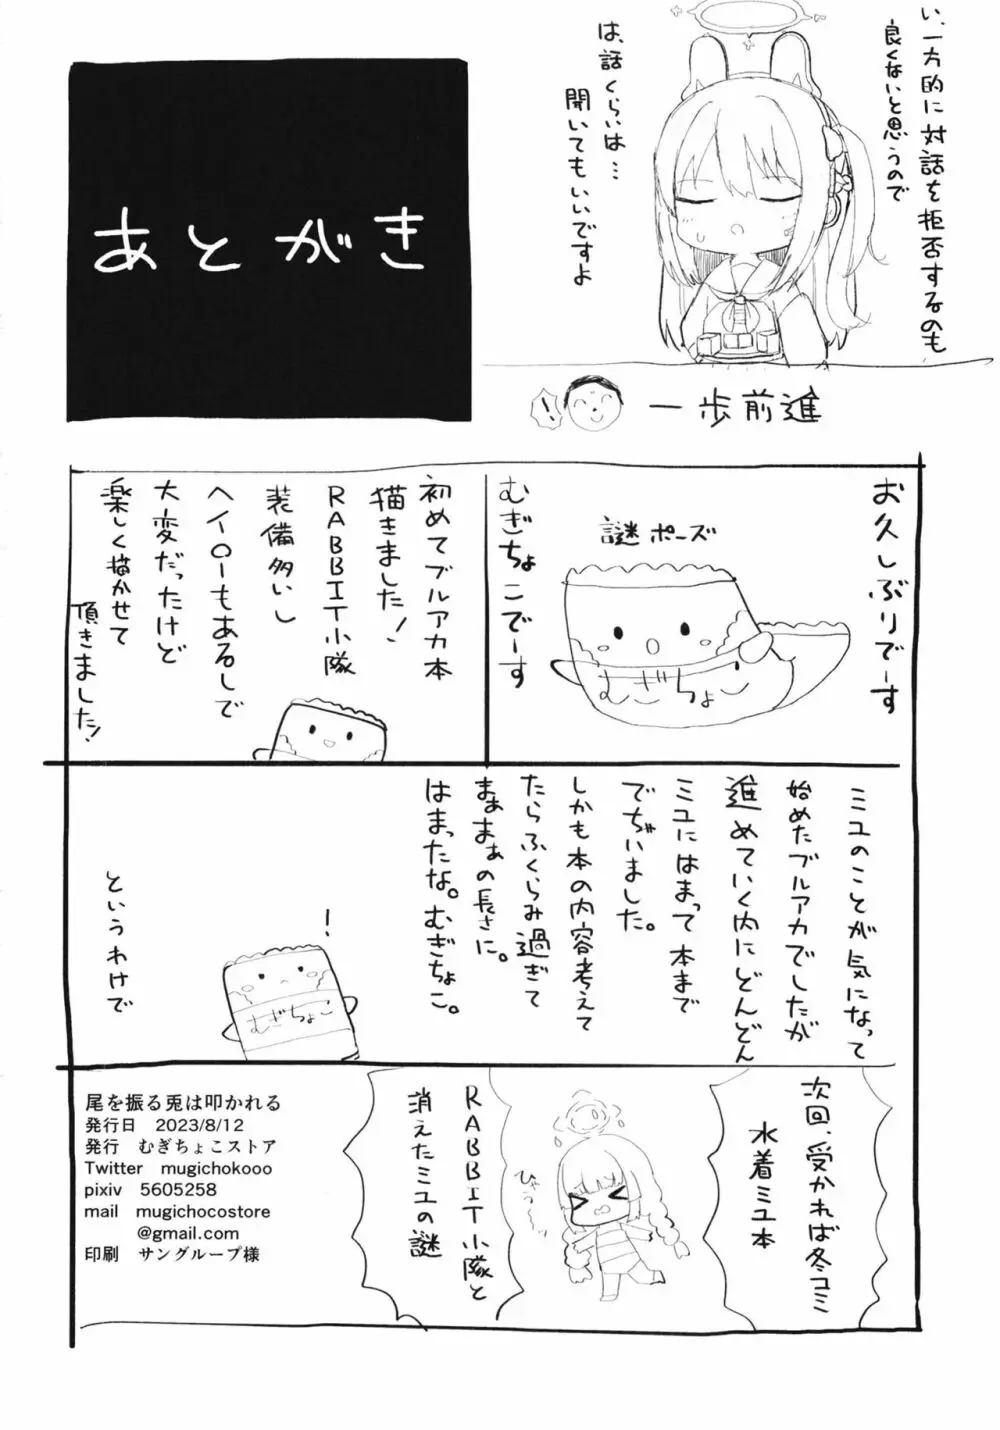 い、一方的に対話を拒否するのも
良くないと思うので
は、話くらいは…
開いてもいいですよ
!
一歩前進
あとがき
お久しぶりでーす
謎ポーズ
むぎちょこ
むぎちょこでーす
初めてブルアカ本
描きました!
RABBIT小隊
装備多いし
ヘイローもあるしで
大変だったけど
楽しく描かせて
頂きました!
ミユのことが気になって
始めたブルアカでしたが
進めていく内にどんどん
ミユにはまって本まで
でぢいました。
しかも本の内容考えて
たらふくらみ過ぎて
まぁまぁの長さに。
はまったな。むぎちょこ。
!
むぎちょこ
というわけで
次回、受かれば冬コミ
水着ミユ本
ひゃぅ〜
RABBIT小隊と
消えたミユの謎
尾を振る兎は叩かれる
発行日 2023/8/12
発行 むぎちょこストア
Twitter mugichokooo
pixiv 5605258
mail mugichocostore
@gmail.com
印刷 サングループ様